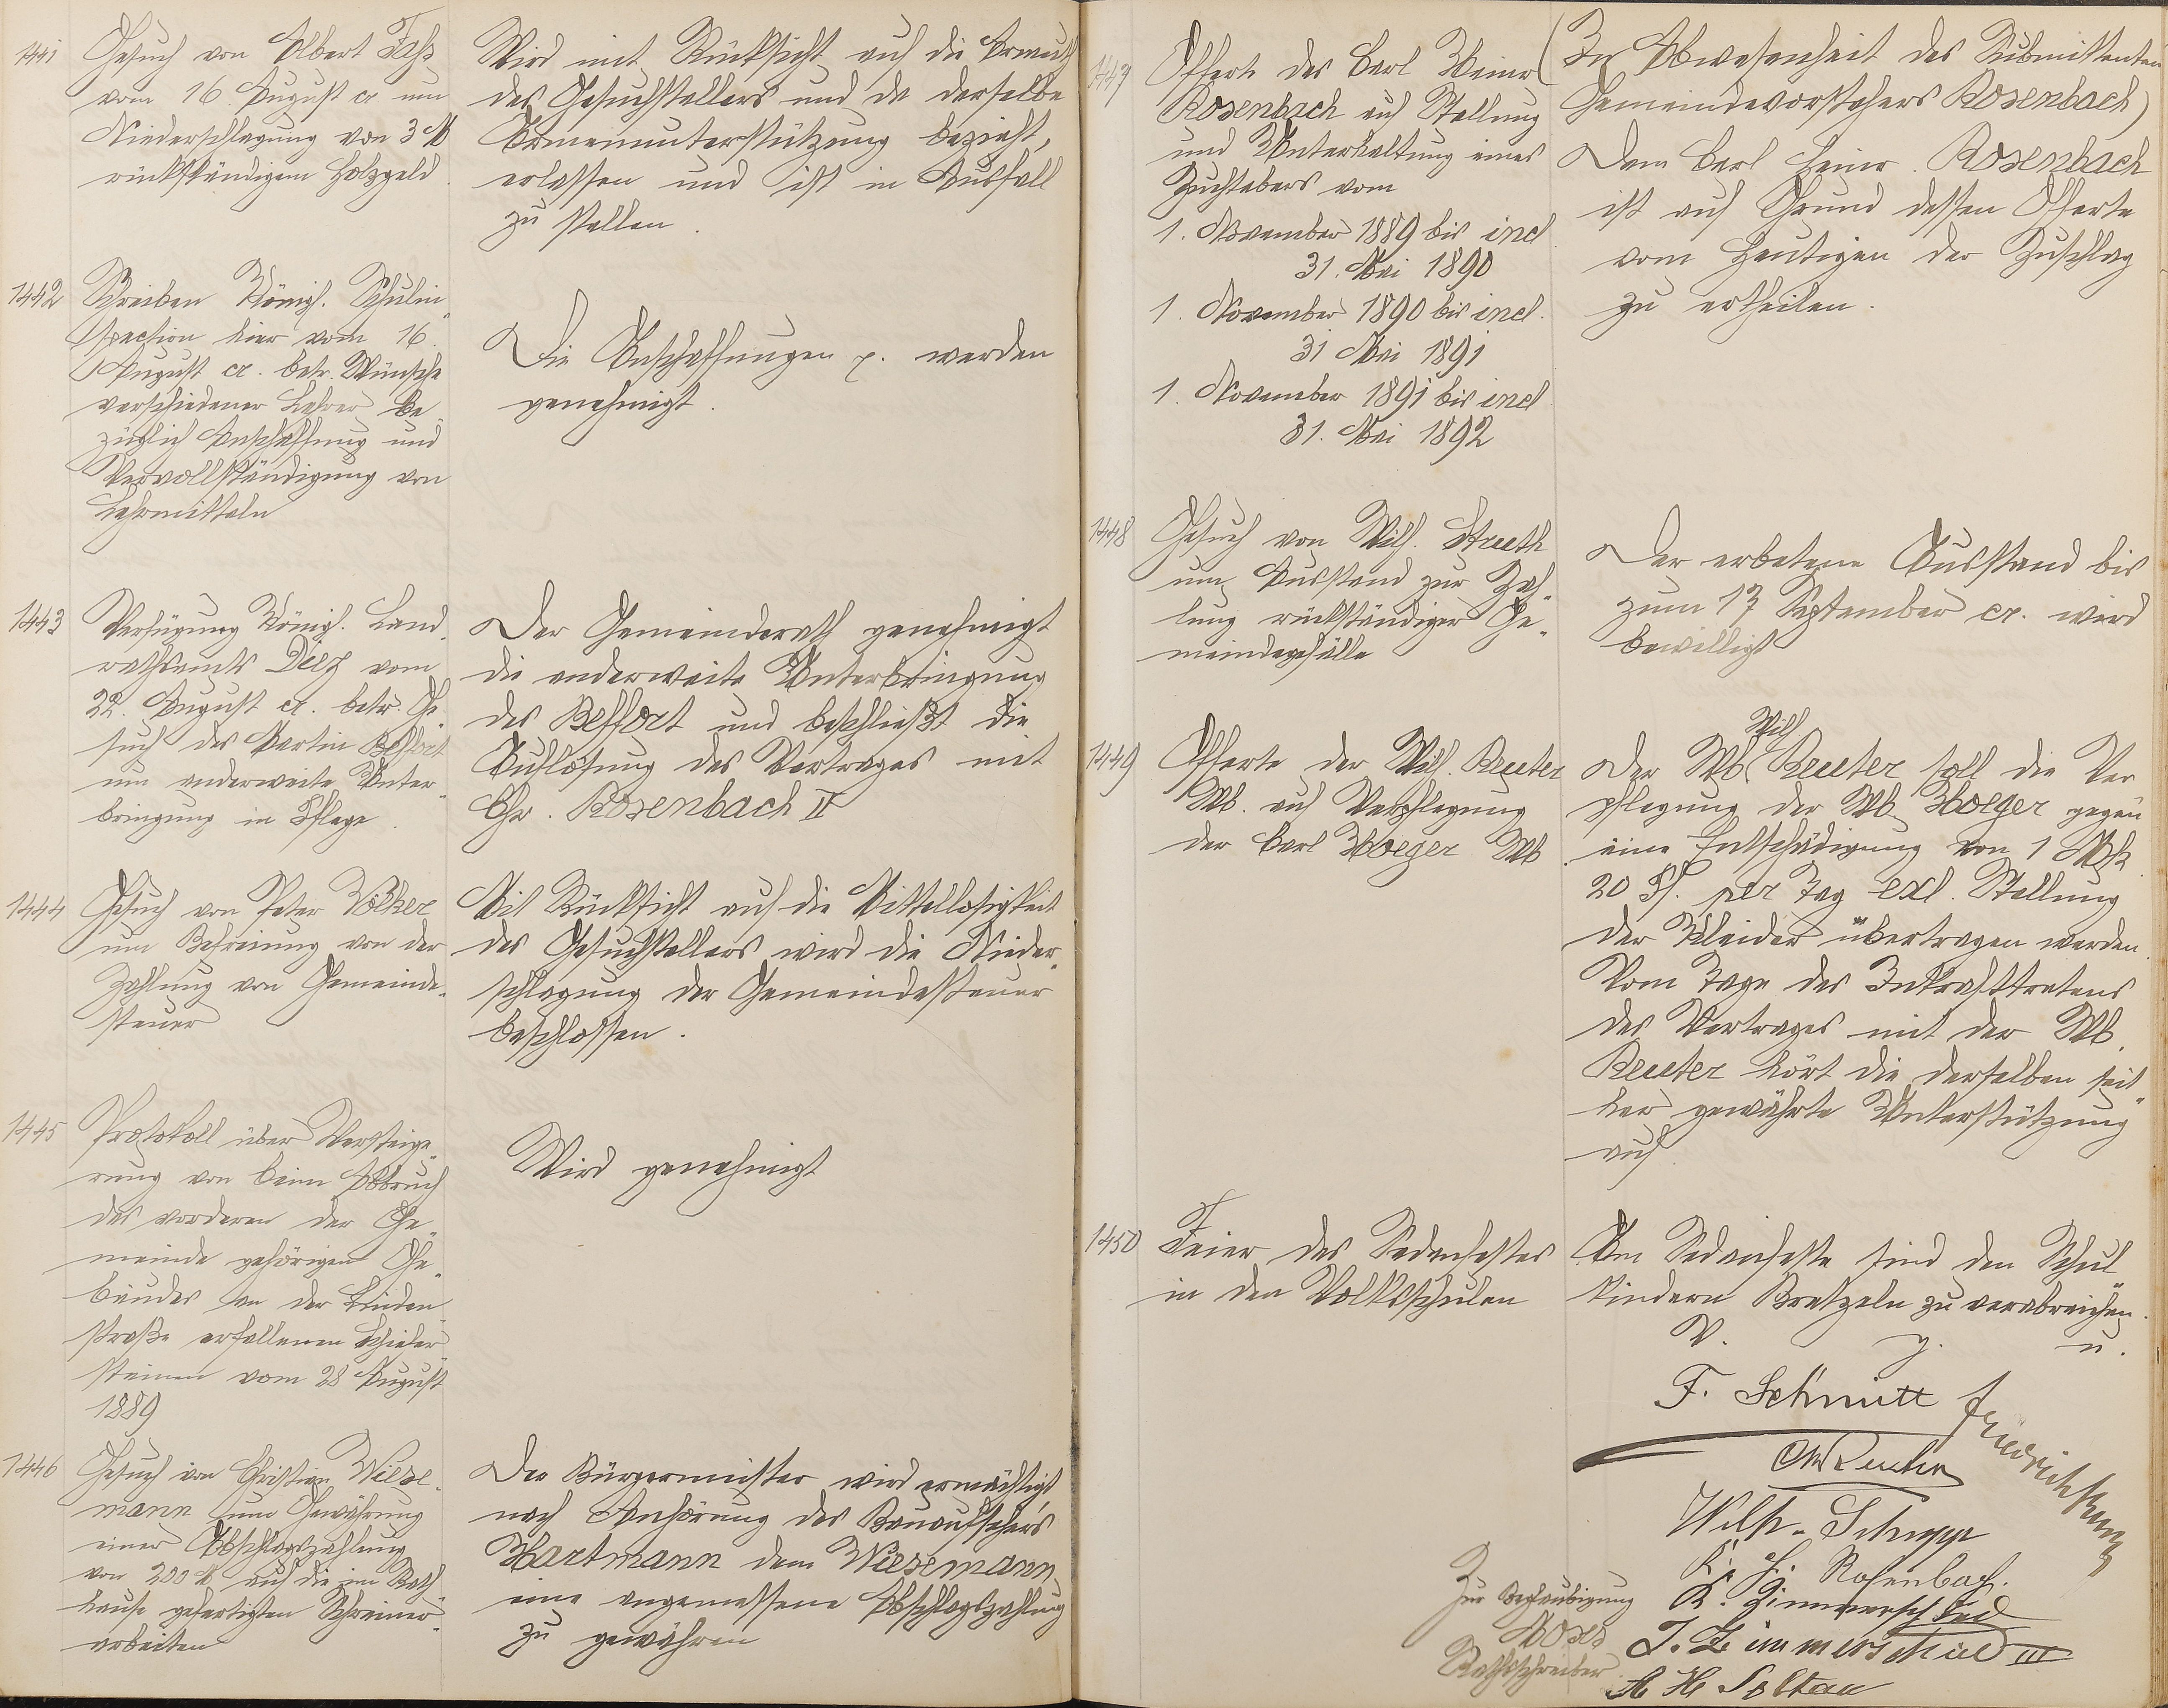 1441
Gesuch von Albert Fehs
vom 16. August cr um
Niederschlagung von 3 M
rückständigem Holzgeld
Wird mit Rücksicht auf die Armuth
des Gesuchstellers und da derselbe
Armenunterstützung bezieht,
erlassen und ist in Ausfall
zu stellen.
1442
Schreiben Königl. Schulin-
spection hier vom 16.
August cr. betr. Wünsche
verschiedener Lehrer be-
züglich Anschaffung und
Vervollständigung von
Lehrmitteln
Die Anschaffungen p. werden
genehmigt.
1443
Verfügung Königl. Land-
rathsamts Diez vom
22. August cr. betr. Ge-
such des Martin Beffort
um anderweite Unter-
bringung in Pflege.
Der Gemeinderath genehmigt
die anderweite Unterbringung
des Beffort und beschließt die
Auflösung des Vertrages mit
Chr. Rosenbach II
1444
Gesuch von Peter Völker
um Befreiung von der
Zahlung von Gemeinde-
steuer
Mit Rücksicht auf die Mittellosigkeit
des Gesuchstellers wird die Nieder-
schlagung der Gemeindesteuer
beschlossen.
1445
Protokoll über Versteige-
rung von beim Abbruch
des vorderen der Ge-
meinde gehörigen Ge-
bäudes in der Linden-
straße erfallenen Schiefer-
steinen vom 28 August
1889
Wird genehmigt
1446
Gesuch von Christian Wiese-
mann um Gewährung
einer Abschlagszahlung
von 200 M auf die im Rath-
hause gefertigten Schreiner-
arbeiten
Der Bürgermeister wird ermächtigt,
nach Anhörung des Bauaufsehers
Hartmann dem Wiesemann
eine angemessene Abschlagszahlung
zu gewähren
1447
Offerte des Carl Heinr
Rosenbach auf Stellung
und Unterhaltung eines
Zuchtebers vom
1. November 1889 bis incl
31. Mai 1890
1. November 1890 bis incl.
31 Mai 1891
1. November 1891 bis incl
31. Mai 1892
(In Abwesenheit des Submittenten
Gemeindevorstehers Rosenbach)
Dem Carl Heinr. Rosenbach
ist auf Grund dessen Offerte
vom Heutigen der Zuschlag
zu ertheilen.
1448
Gesuch von Wilh. Struth
um Ausstand zur Zah-
lung rückständiger Ge-
meindegefälle
Der erbetene Ausstand bis
zum 17 September cr. wird
bewilligt
1449
Offerte der Wilh. Reuter
Wb. auf Verpflegung
der Carl Hoeger Wb
Wilh
Der Wb. Reuter soll die Ver
pflegung der Wb. Hoeger gegen
eine Entschädigung von 1 Mk
20 Pf. per Tag exl. Stellung
der Kleider übertragen werden.
Vom Tage des Inkrafttretens
des Vertrages mit der Wb.
Reuter hört die derselben seit-
her gewährte Unterstützung
auf
1450
Feier des Sedanfestes
in den Volksschulen
Am Sedanfeste sind den Schul-
kindern Bretzeln zu verabreichen.
V. g. u.
F. Schmitt
Reuter
Wilh. Schupp
K. H. Rosenbach.
K. Zimmerschied
J. Zimmerschied III
A H Soltau
Zur Beglaubigung
Moses
Rathsschreiber